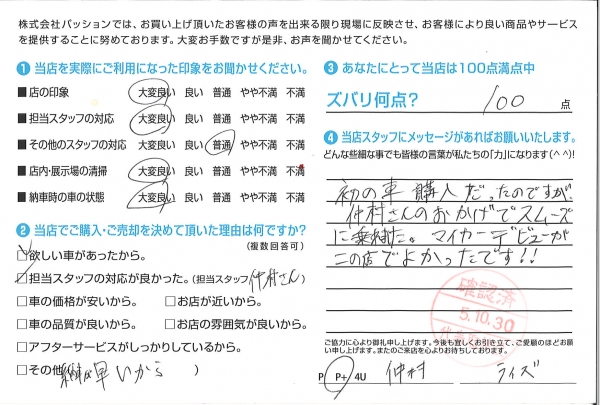 株式会社パッションでは、お買い上げ頂いたお客様の声を出来る限り現場に反映させ、お客様により良い商品やサービス
を提供することに努めております。大変お手数ですが是非、お声を聞かせてください。
1 当店を実際にご利用になった印象をお聞かせください。
■店の印象 大変良い 良い 普通 やや不満 不満
■担当スタッフの対応 大変良い 良い 普通 やや不満 不満
■その他のスタッフの対応 大変良い 良い 普通 やや不満 不満
■店内・展示場の清掃 大変良い 良い 普通 やや不満 不満
■納車時の車の状態 大変良い 良い 普通 やや不満 不満
2 当店でご購入・ご売却を決めて頂いた理由は何ですか?
(複数回答可)
□欲しい車があったから。
□担当スタッフの対応が良かった。(担当スタッフ 仲村さん)
□車の価格が安いから。 □お店が近いから。
□車の品質が良いから。 □お店の雰囲気が良いから。
□アフターサービスがしっかりしているから。
□その他 納車が早いから )
3 あなたにとって当店は100点満点中
ズバリ何点? 100 点
4 当店スタッフにメッセージがあればお願いいたします。
どんな些細な事でも皆様の言葉が私たちの「力」になります(^ ^)!
初の車購入だったのですが、
仲村さんのおかげでスムーズ
に乗れた。マイカーデビューが
この店でよかったです!!
確認済
5.10.30
ご協力に心より御礼申し上げます。今後も宜しくお引き立て、ご愛顧のほどお願
い申し上げます。またのご来店を心よりお待ちしております。
P P+ 4U 仲村 ライズ